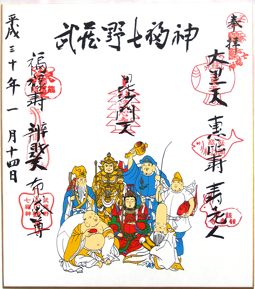 武蔵野七福神
奉拝
大黒天 恵比寿 寿老人
毘沙門天
福禄寿 辨財天 布袋尊
平成三十年一月十四日